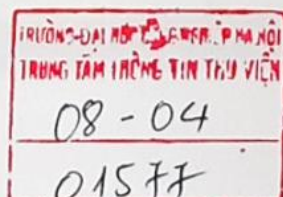 TRƯỜNG ĐẠI HỌC P HÀ NỘI
TRUNG TÂM THÔNG TIN THƯ VIỆN
08 - 04
01577